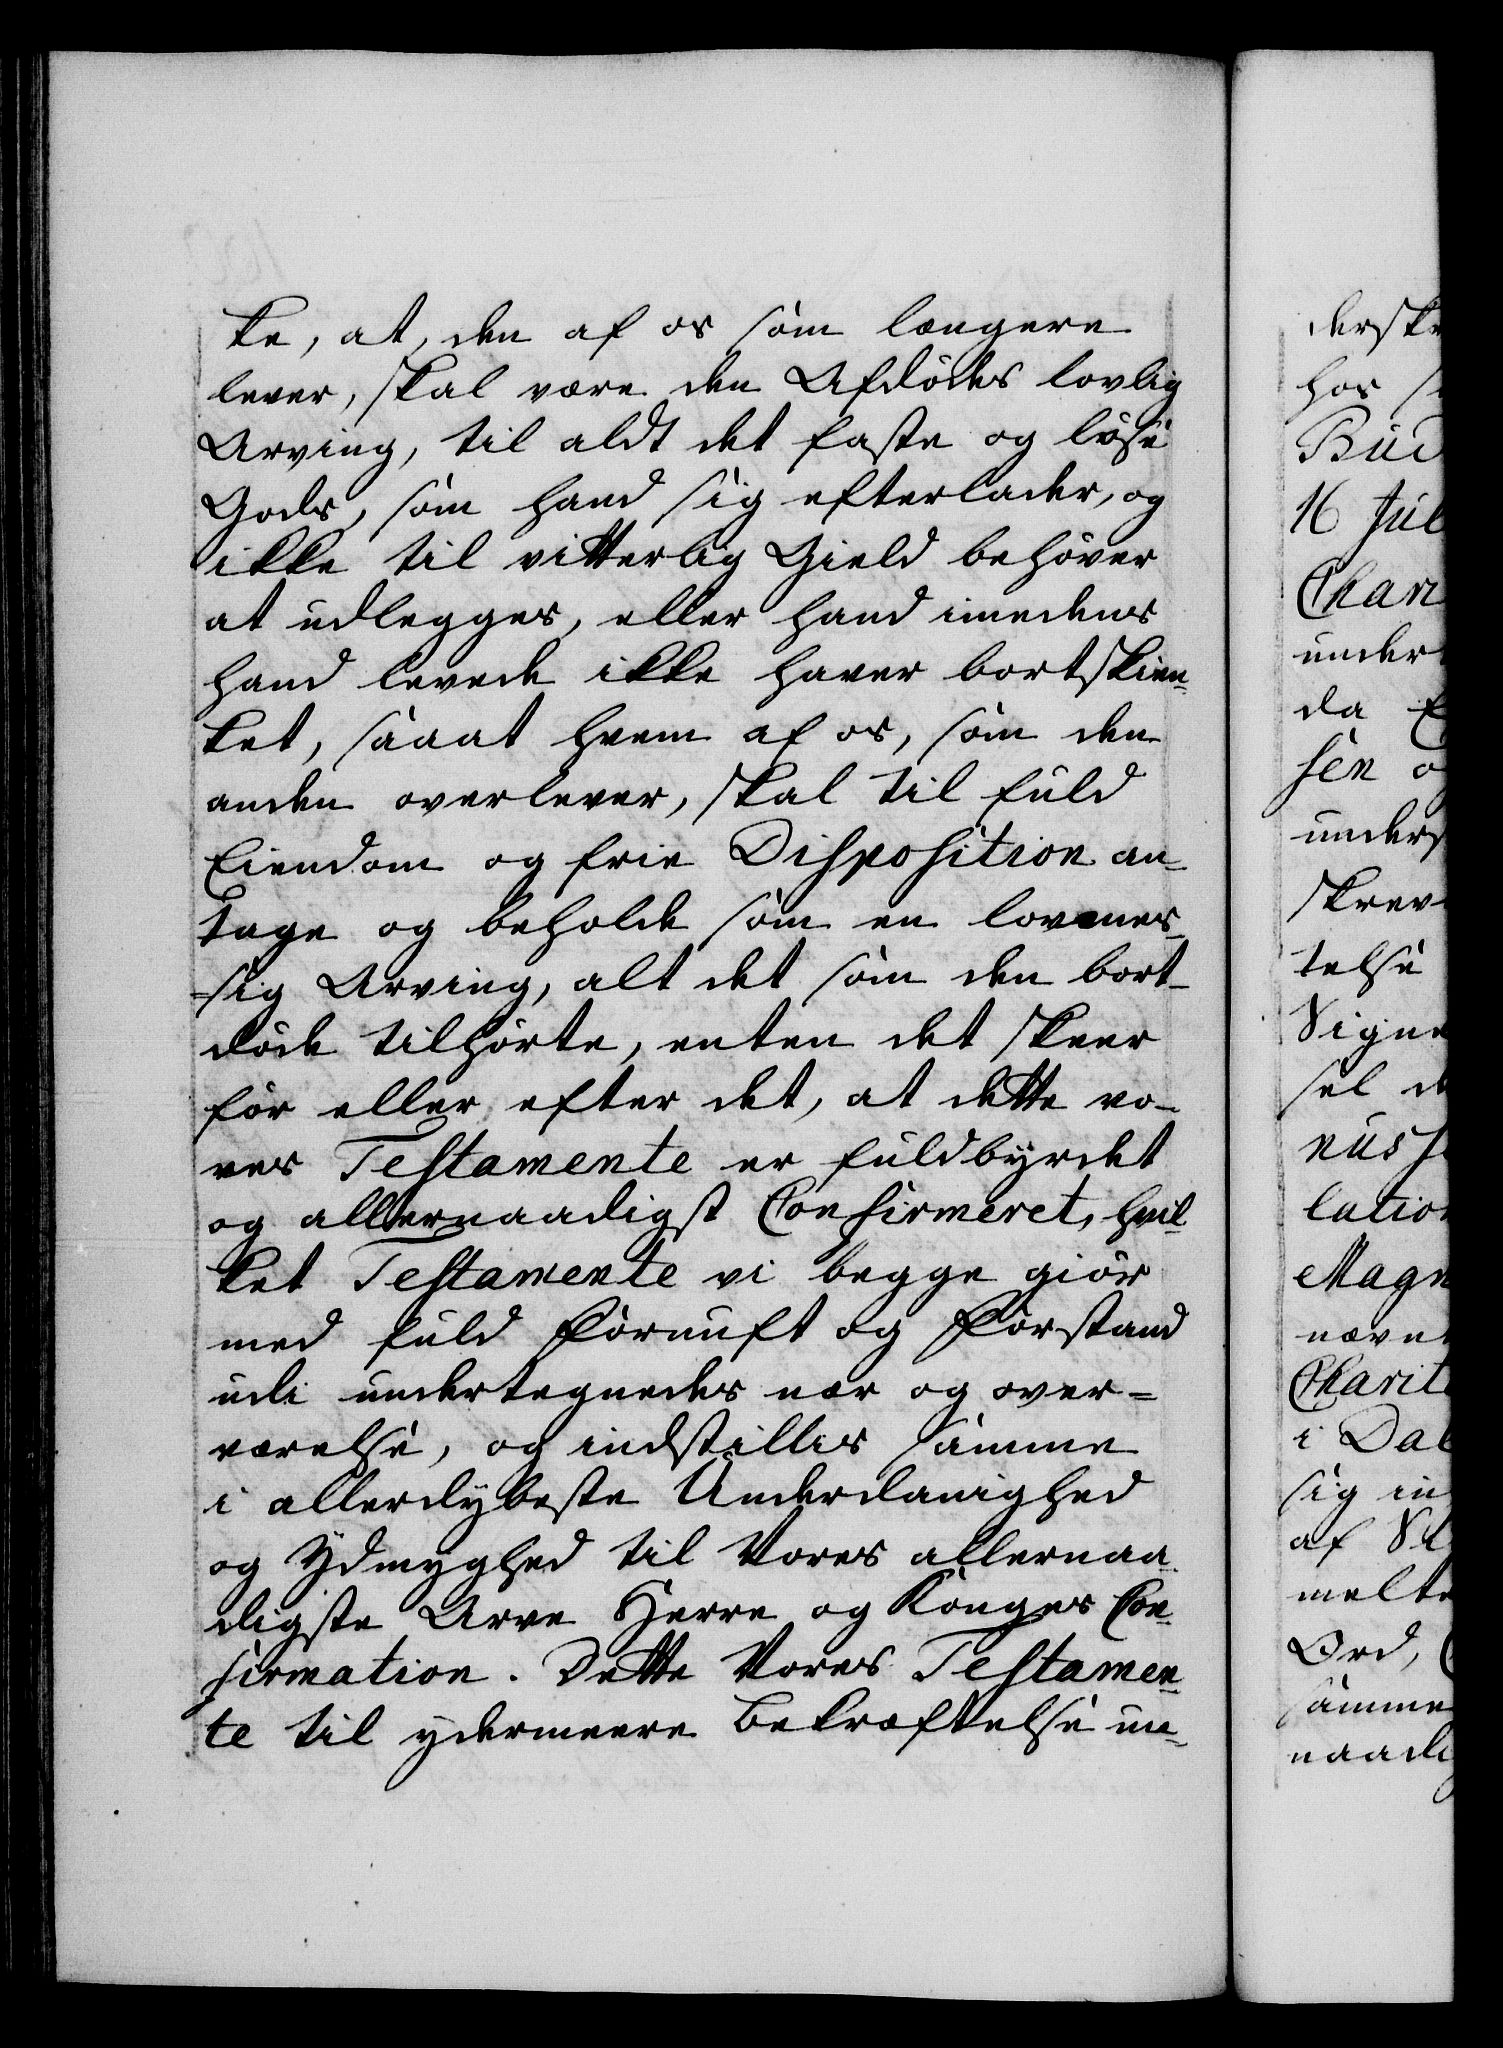 ke, at, den af os som længere
lever, skal være den Afdødes lovlig
Arving, til aldt det faste og løse
Gods, som hand sig efterlader, og
ikke til vitterlig Gield behøver
at udlegges, eller hand imedens
hand levede ikke haver bortskien-
ket, saaat hvem af os, som den
anden overlever, skal til fuld
Eiendom og frie Disposition an-
tage og beholde som en lovmes-
sig Arving, alt det som den bort-
døde tilhørte, enten det skeer
før eller efter det, at dette vo-
res Testamente er fuldbyrdet
og allernaadigst Confirmeret, hvil-
ket Testamente vi begge giør
med fuld Fornuft og Forstand
udi undertegnedes nær og over-
værelse, og indstilles samme
i allerdybeste Underdanighed
og Ydmyghed til Vores allernaa-
digste Arve Herre og Konges Con-
firmation. Dette Vores Testamen-
te til ydermeere Bekræftelse un-
derskr
hos
Bud
16 Jul
Chari
under
da
sen
unders
skrev
telse
Signe
sel
nus
lation
Magn
nævnt
Charit
i Dal
sig in
af
melte
Ord,
samme
naadi